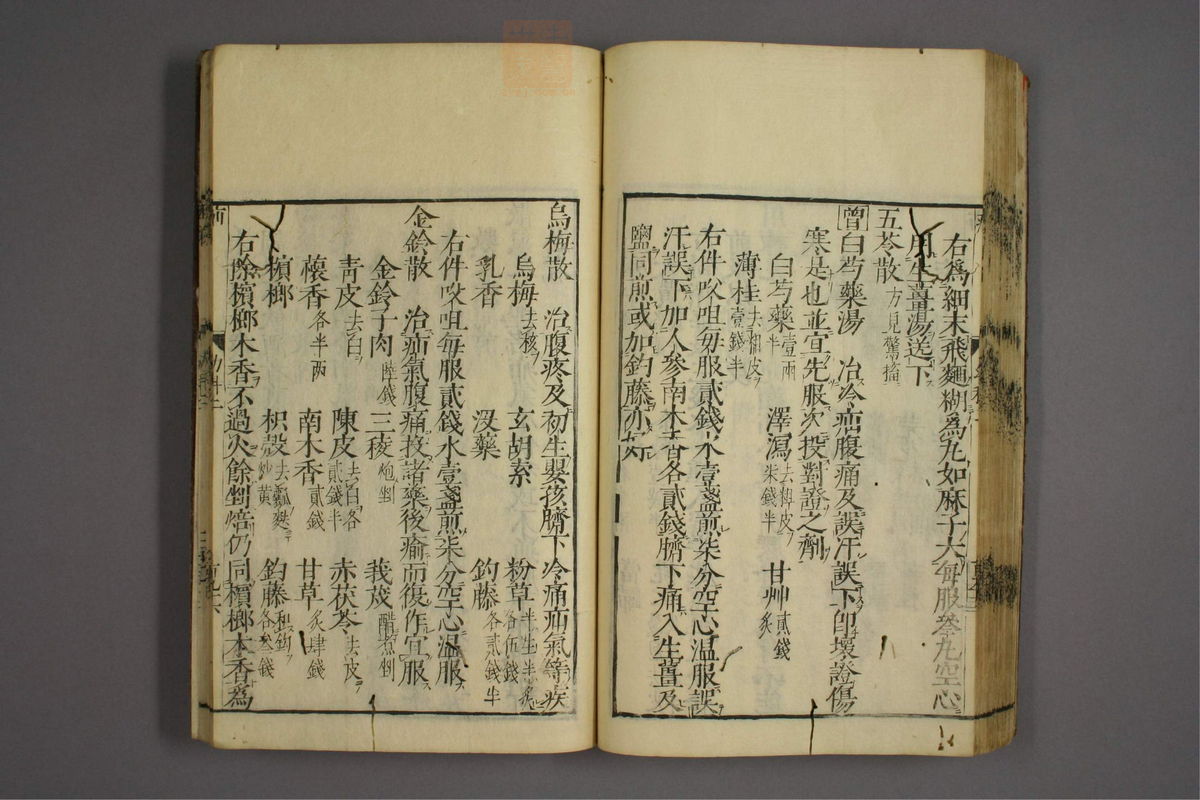 右爲細末飛麵糊為丸如麻子大每服叄丸空心
用生薑湯送下
五苓散 方見驚搐
曾白芍藥湯 治冷疝腹痛及誤汗誤下卽壞證傷
寒是也並宜先服次投對證之劑
白芍藥 壹兩半 澤瀉 去粗皮柒錢半 甘艸 貳錢炙
薄桂 去粗皮壹錢半
右件㕮咀每服貳錢水壹盞煎柒分空心温服誤
汗誤下加人參南木香各貳錢臍下痛入生薑及
鹽同煎或加釣藤亦好
烏梅散 治腹疼及初生嬰孩臍下冷痛疝氣等疾
烏梅 去核 玄胡索 粉草 半生半炙各伍錢
乳香 沒藥 釣藤 各貳錢半
右件㕮咀每服貳錢水壹盞煎柒分空心温服
金鈴散 治疝氣腹痛投諸藥後瘉而復作宜服
金鈴子肉 陸錢 三稜 炮剉 莪茂 醋煮剉
靑皮 去白 陳皮 去白各貳錢半 赤茯苓 去皮
槵香 各半兩 南木香 貳錢 甘草 炙肆錢
檳榔 枳殼 去瓤麩炒黄 釣藤 和鈎各叄錢
右除檳榔木香不過火餘剉焙仍同檳榔木香為